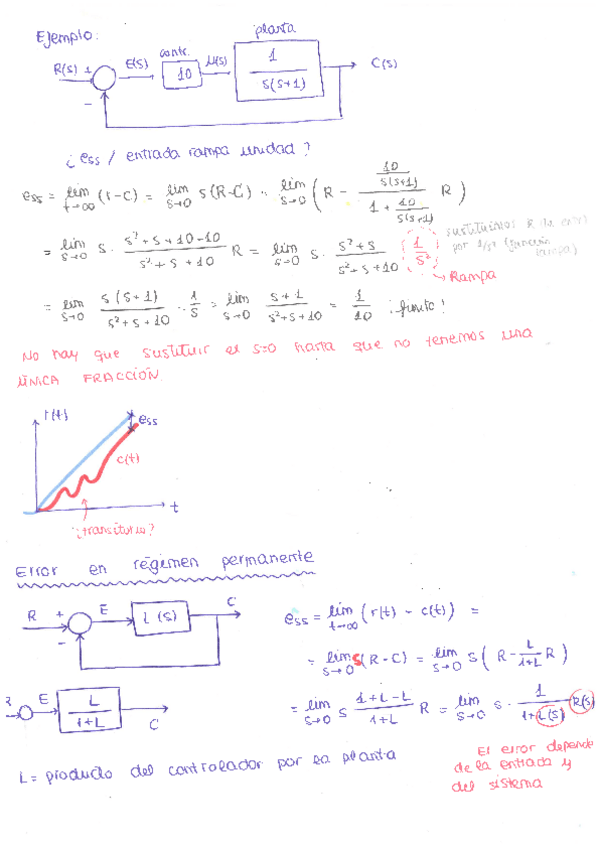 Ejemplo:
planta
contr.
R(s) + E(s) 10 M(s) 1/(s(s+1)) C(s)
−
¿ess / entrada rampa unidad?
ess = lim t→∞ (r-c) = lim s→0 s(R-C) = lim s→0 (R - (10/(s(s+1)))/(1 + 10/(s(s+1))) R)
= lim s→0 s · (s²+s+10-10)/(s²+s+10) R = lim s→0 s · (s²+s)/(s²+s+10) (1/s²)
sustituimos R
por 1/s² (función
rampa)
→ Rampa
= lim s→0 s(s+1)/(s²+s+10) · 1/s = lim s→0 (s+1)/(s²+s+10) = 1/10 ¡finito!
No hay que sustituir el s=0 hasta que no tenemos una
ÚNICA FRACCIÓN
r(t)
ess
c(t)
t
¿transitorio?
Error en régimen permanente
R + E L(s) C
−
ess = lim t→∞ (r(t) - c(t)) =
= lim s→0 s(R-C) = lim s→0 s(R - L/(1+L) R)
E L/(1+L) C
= lim s→0 s (1+L-L)/(1+L) R = lim s→0 s · 1/(1+L(s)) R(s)
L = producto del controlador por la planta
El error depende
de la entrada y
del sistema